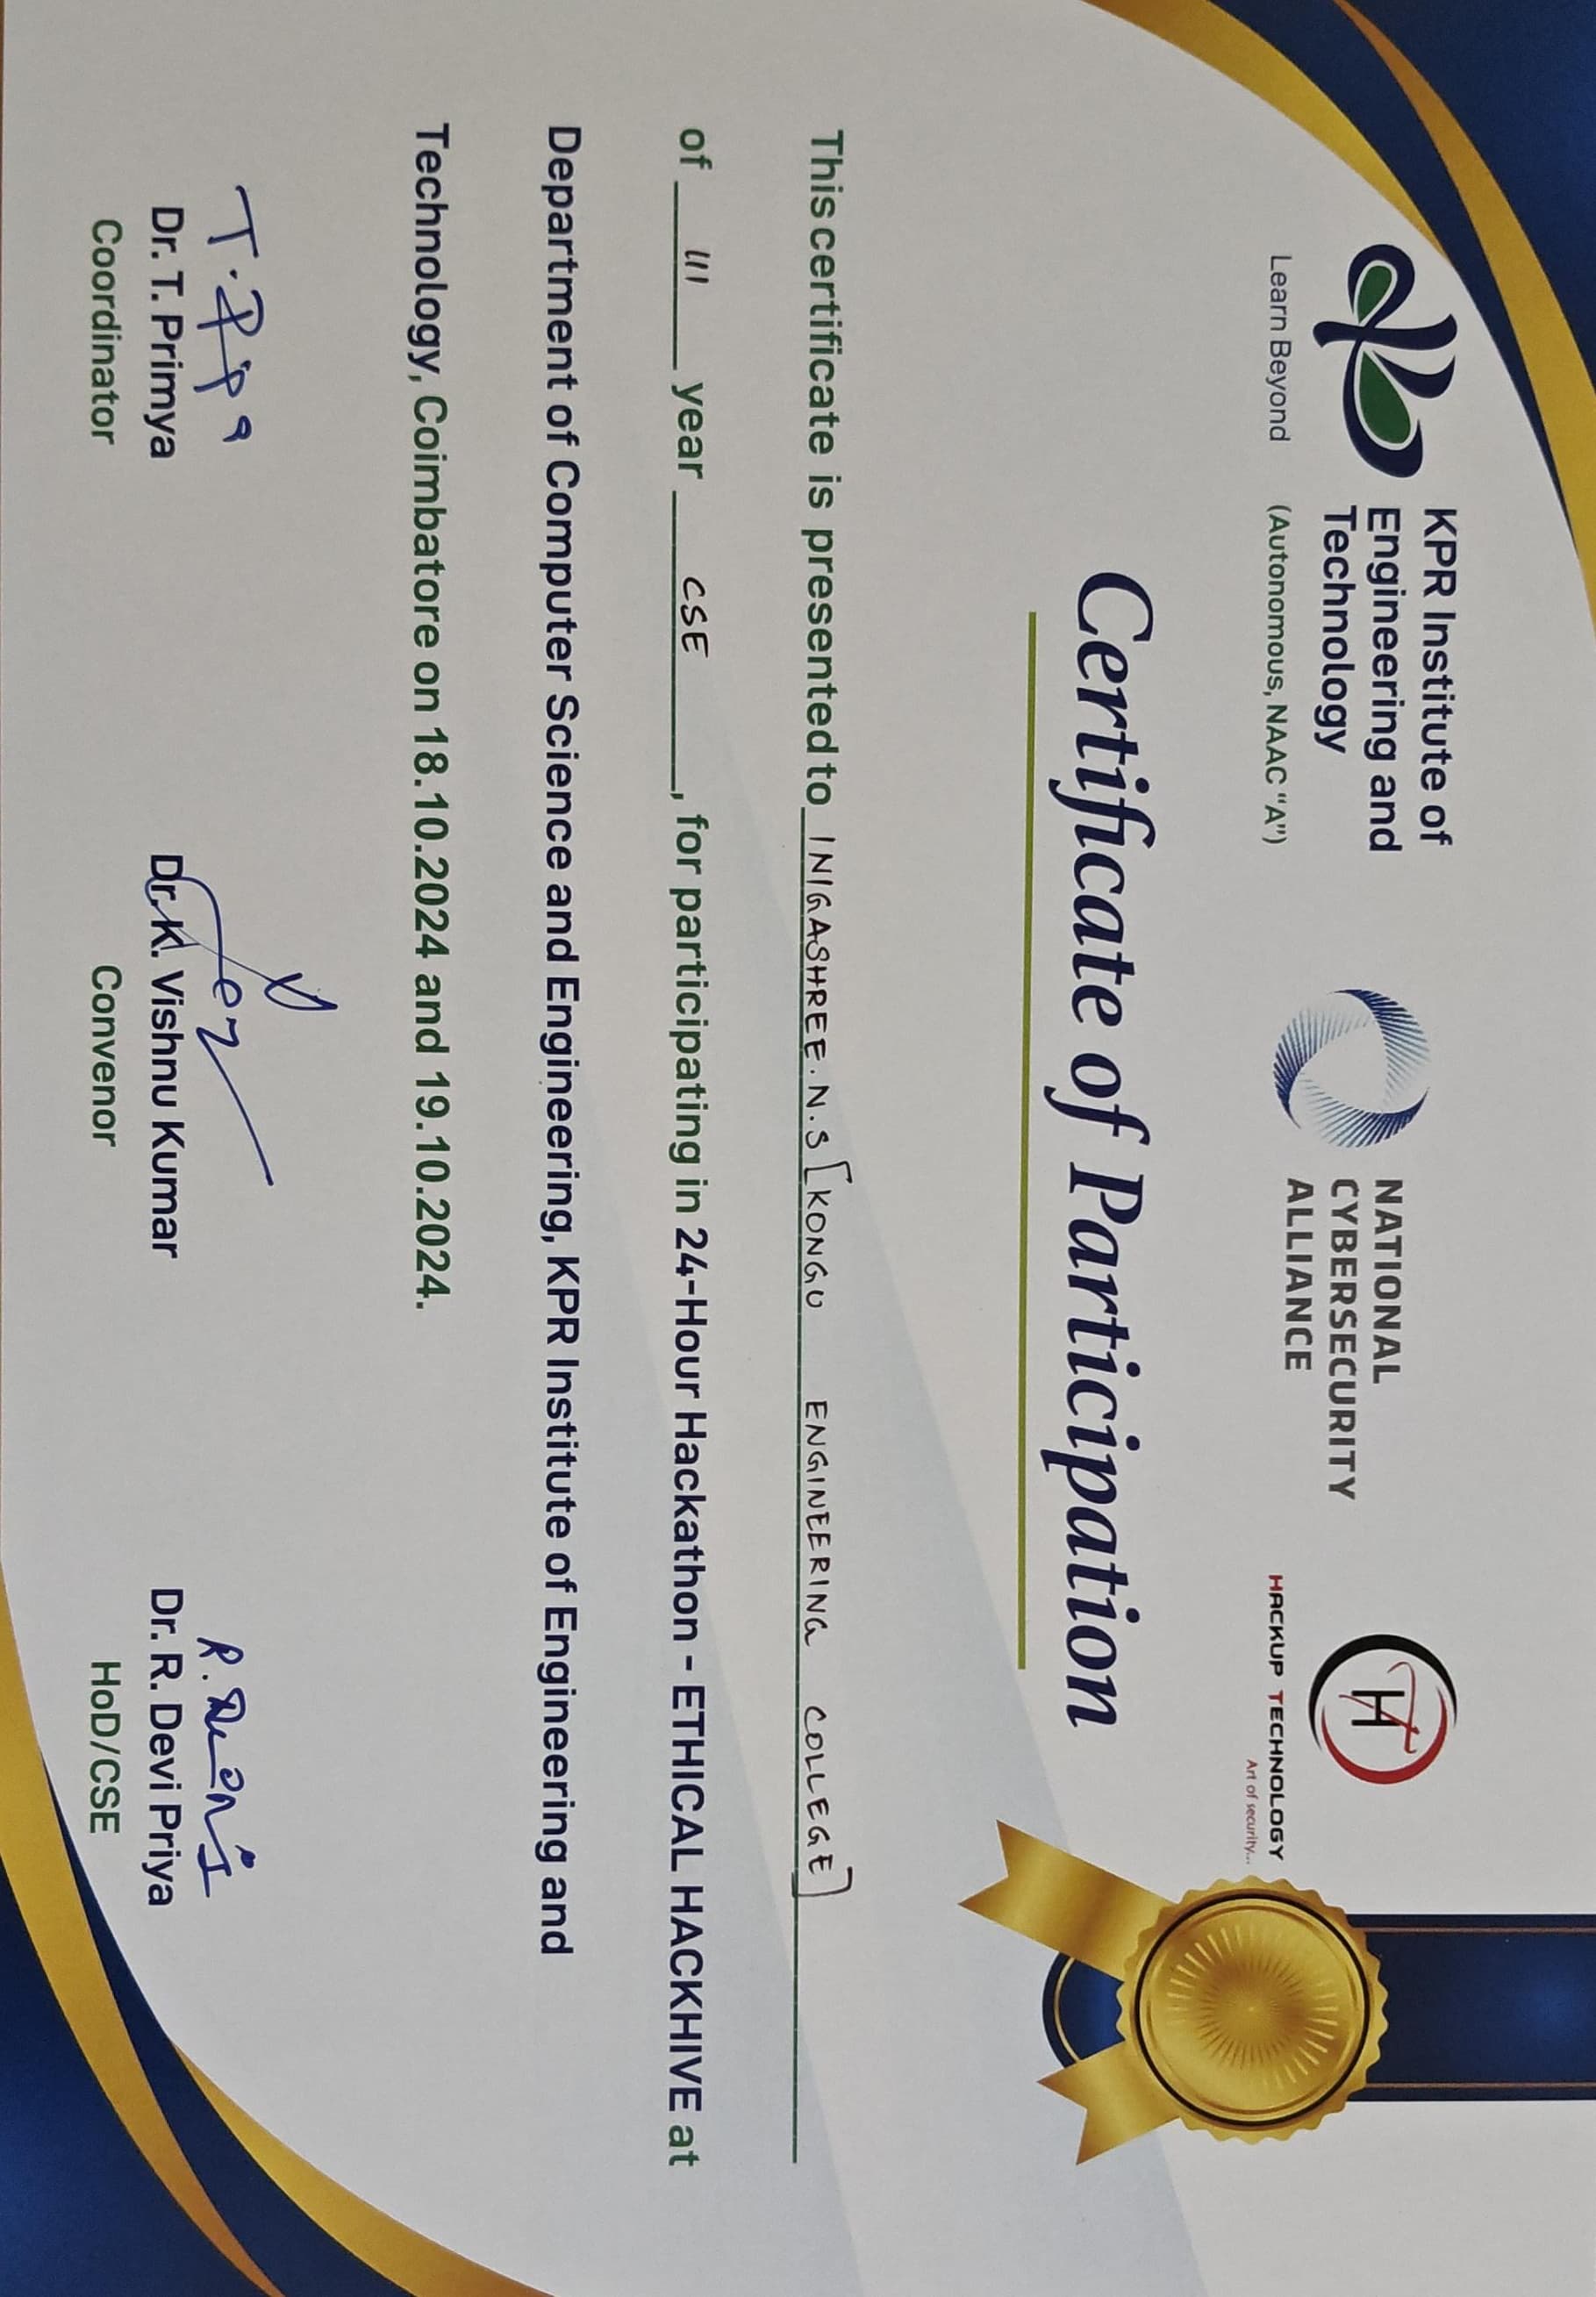 KPR Institute of
Engineering and
Technology
Learn Beyond
(Autonomous, NAAC "A")
NATIONAL
CYBERSECURITY
ALLIANCE
HACKUP TECHNOLOGY
Art of security...
Certificate of Participation
This certificate is presented to INIGASHREE.N.S [KONGU ENGINEERING COLLEGE]
of III year CSE, for participating in 24-Hour Hackathon - ETHICAL HACKHIVE at
Department of Computer Science and Engineering, KPR Institute of Engineering and
Technology, Coimbatore on 18.10.2024 and 19.10.2024.
Dr. T. Primya
Coordinator
Dr. K. Vishnu Kumar
Convenor
Dr. R. Devi Priya
HoD/CSE